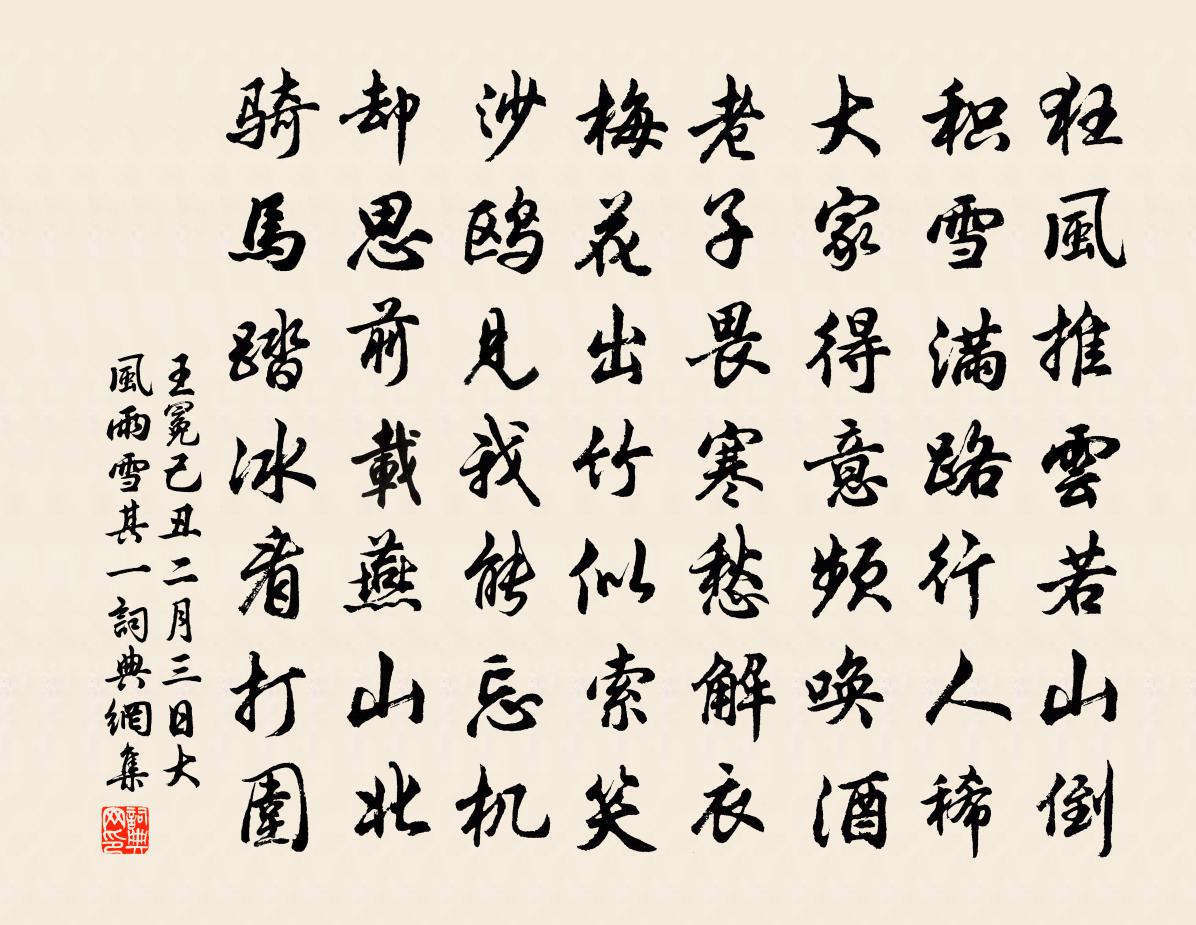 狂風推雲若山倒
积雪满路行人稀
大家得意频唤酒
老子畏寒愁解衣
梅花出竹似索笑
沙鸥見我能忘机
却思前載燕山北
骑馬踏冰看打圍
王冕己丑二月三日大
風雨雪其一詞典網集
詞典網印